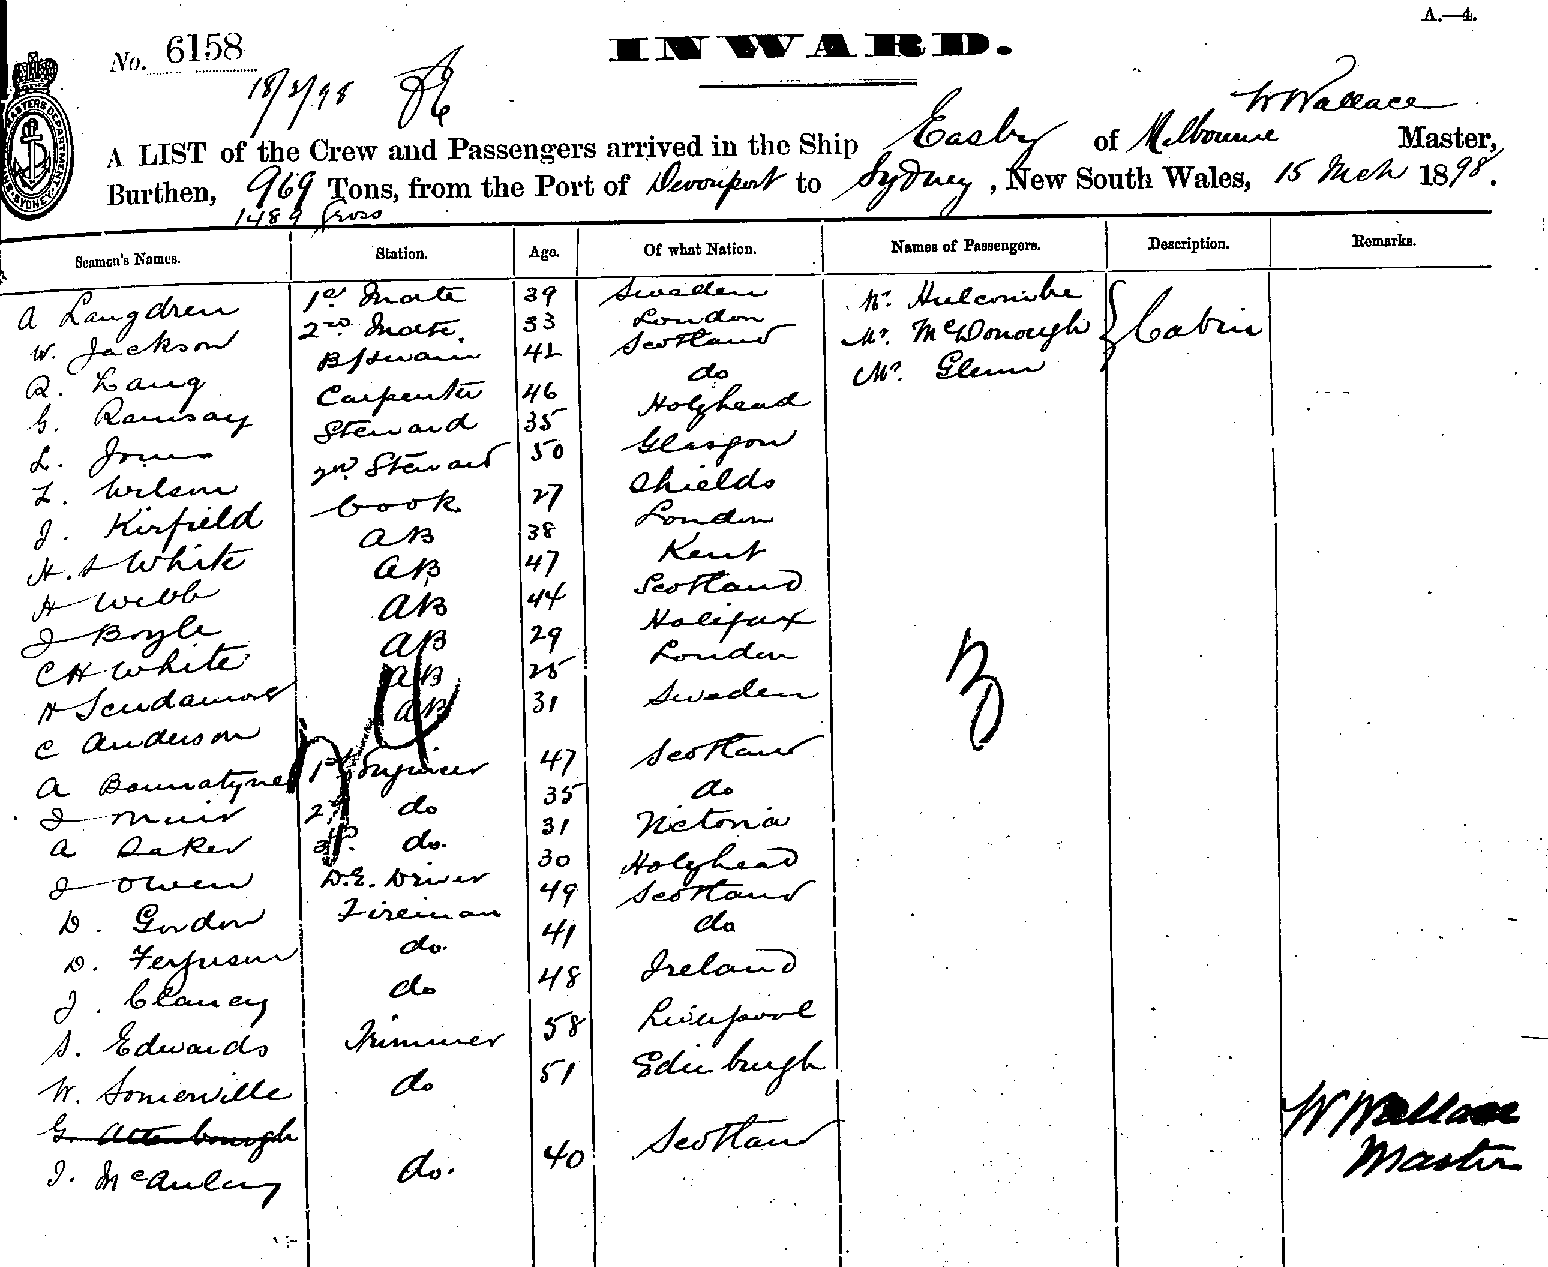 A.—4.
No. 6158
INWARD.
18/3/98
W Wallace
A LIST of the Crew and Passengers arrived in the Ship Easby of Melbourne Master,
Burthen, 969 Tons, from the Port of Devonport to Sydney, New South Wales, 15 Mch 1898.
1489 Gross
Seamen's Names. Station. Age. Of what Nation. Names of Passengers. Description. Remarks.
A Langdren 1st Mate 39 Sweden Mr. Hulcombe
W. Jackson 2nd Mate. 33 London Mr. McDonough Cabin
R. Lang B/swain 42 Scotland Mr. Glenn
G. Ramsay Carpenter 46 do
L. Jones Steward 35 Holyhead
L. Wilson 2nd Steward 50 Glasgow
J. Kirfield Cook 27 Shields
H. S White AB 38 London
H Webb AB 47 Kent
J Boyle AB 44 Scotland
C H White AB 29 Halifax
H Scudamore AB 25 London
C Anderson AB 31 Sweden
A Bannatyne 1st Engineer 47 Scotland
J Muir 2nd do 35 do
A Baker 3rd do. 31 Victoria
J Owen D.E. Driver 30 Holyhead
D. Gordon Fireman 49 Scotland
D. Ferguson do. 41 do
J. Clancy do 48 Ireland
S. Edwards Trimmer 58 Liverpool
W. Somerville do 51 Edinburgh
G. Attenborough
J. McAuley do. 40 Scotland
3
W Wallace
Master